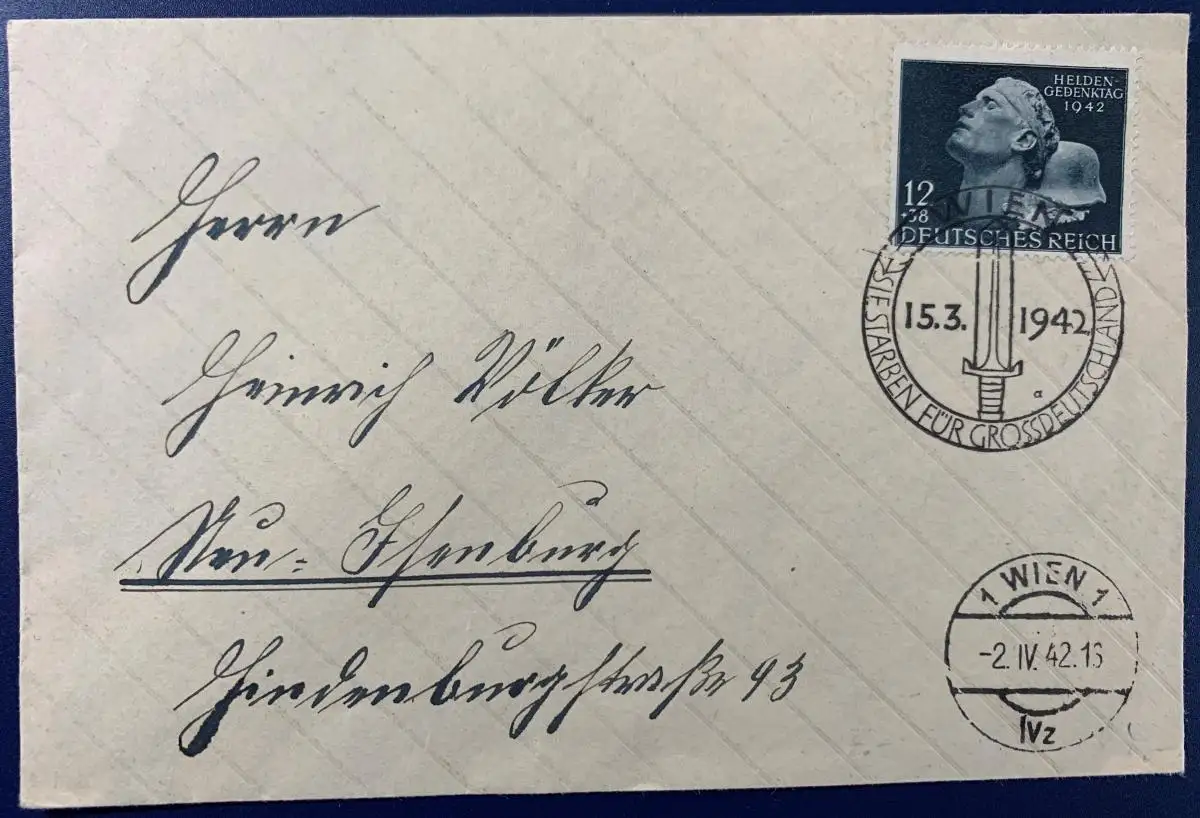 HELDEN-
GEDENKTAG
1942
12
+38
DEUTSCHES REICH
WIEN
15.3. 1942
a
SIE STARBEN FÜR GROSSDEUTSCHLAND
Herrn
Heinrich Völker
Neu-Isenburg
Hindenburgstraße 93
1 WIEN 1
-2. IV. 42. 16
IVz